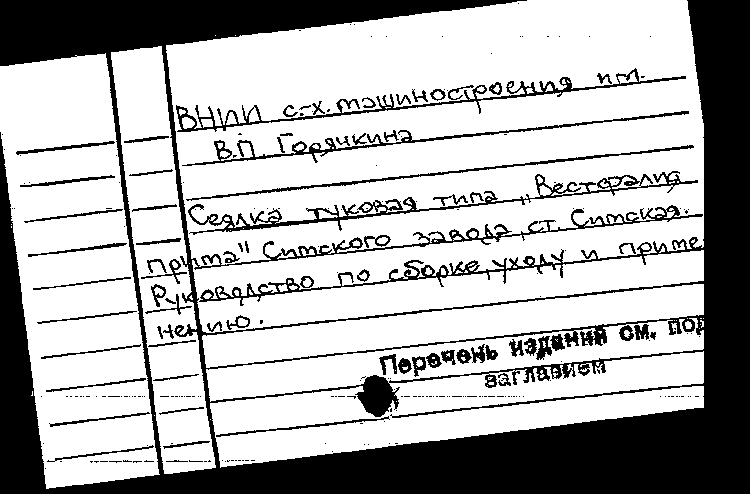 ВНИИ с.-х. машиностроения им.
В.П. Горячкина
Сеялка туковая типа „Вестфалия
прима" Ситского завода, ст. Ситская.
Руководство по сборке, уходу и приме
нению.
Перечень изданий см. под
заглавием